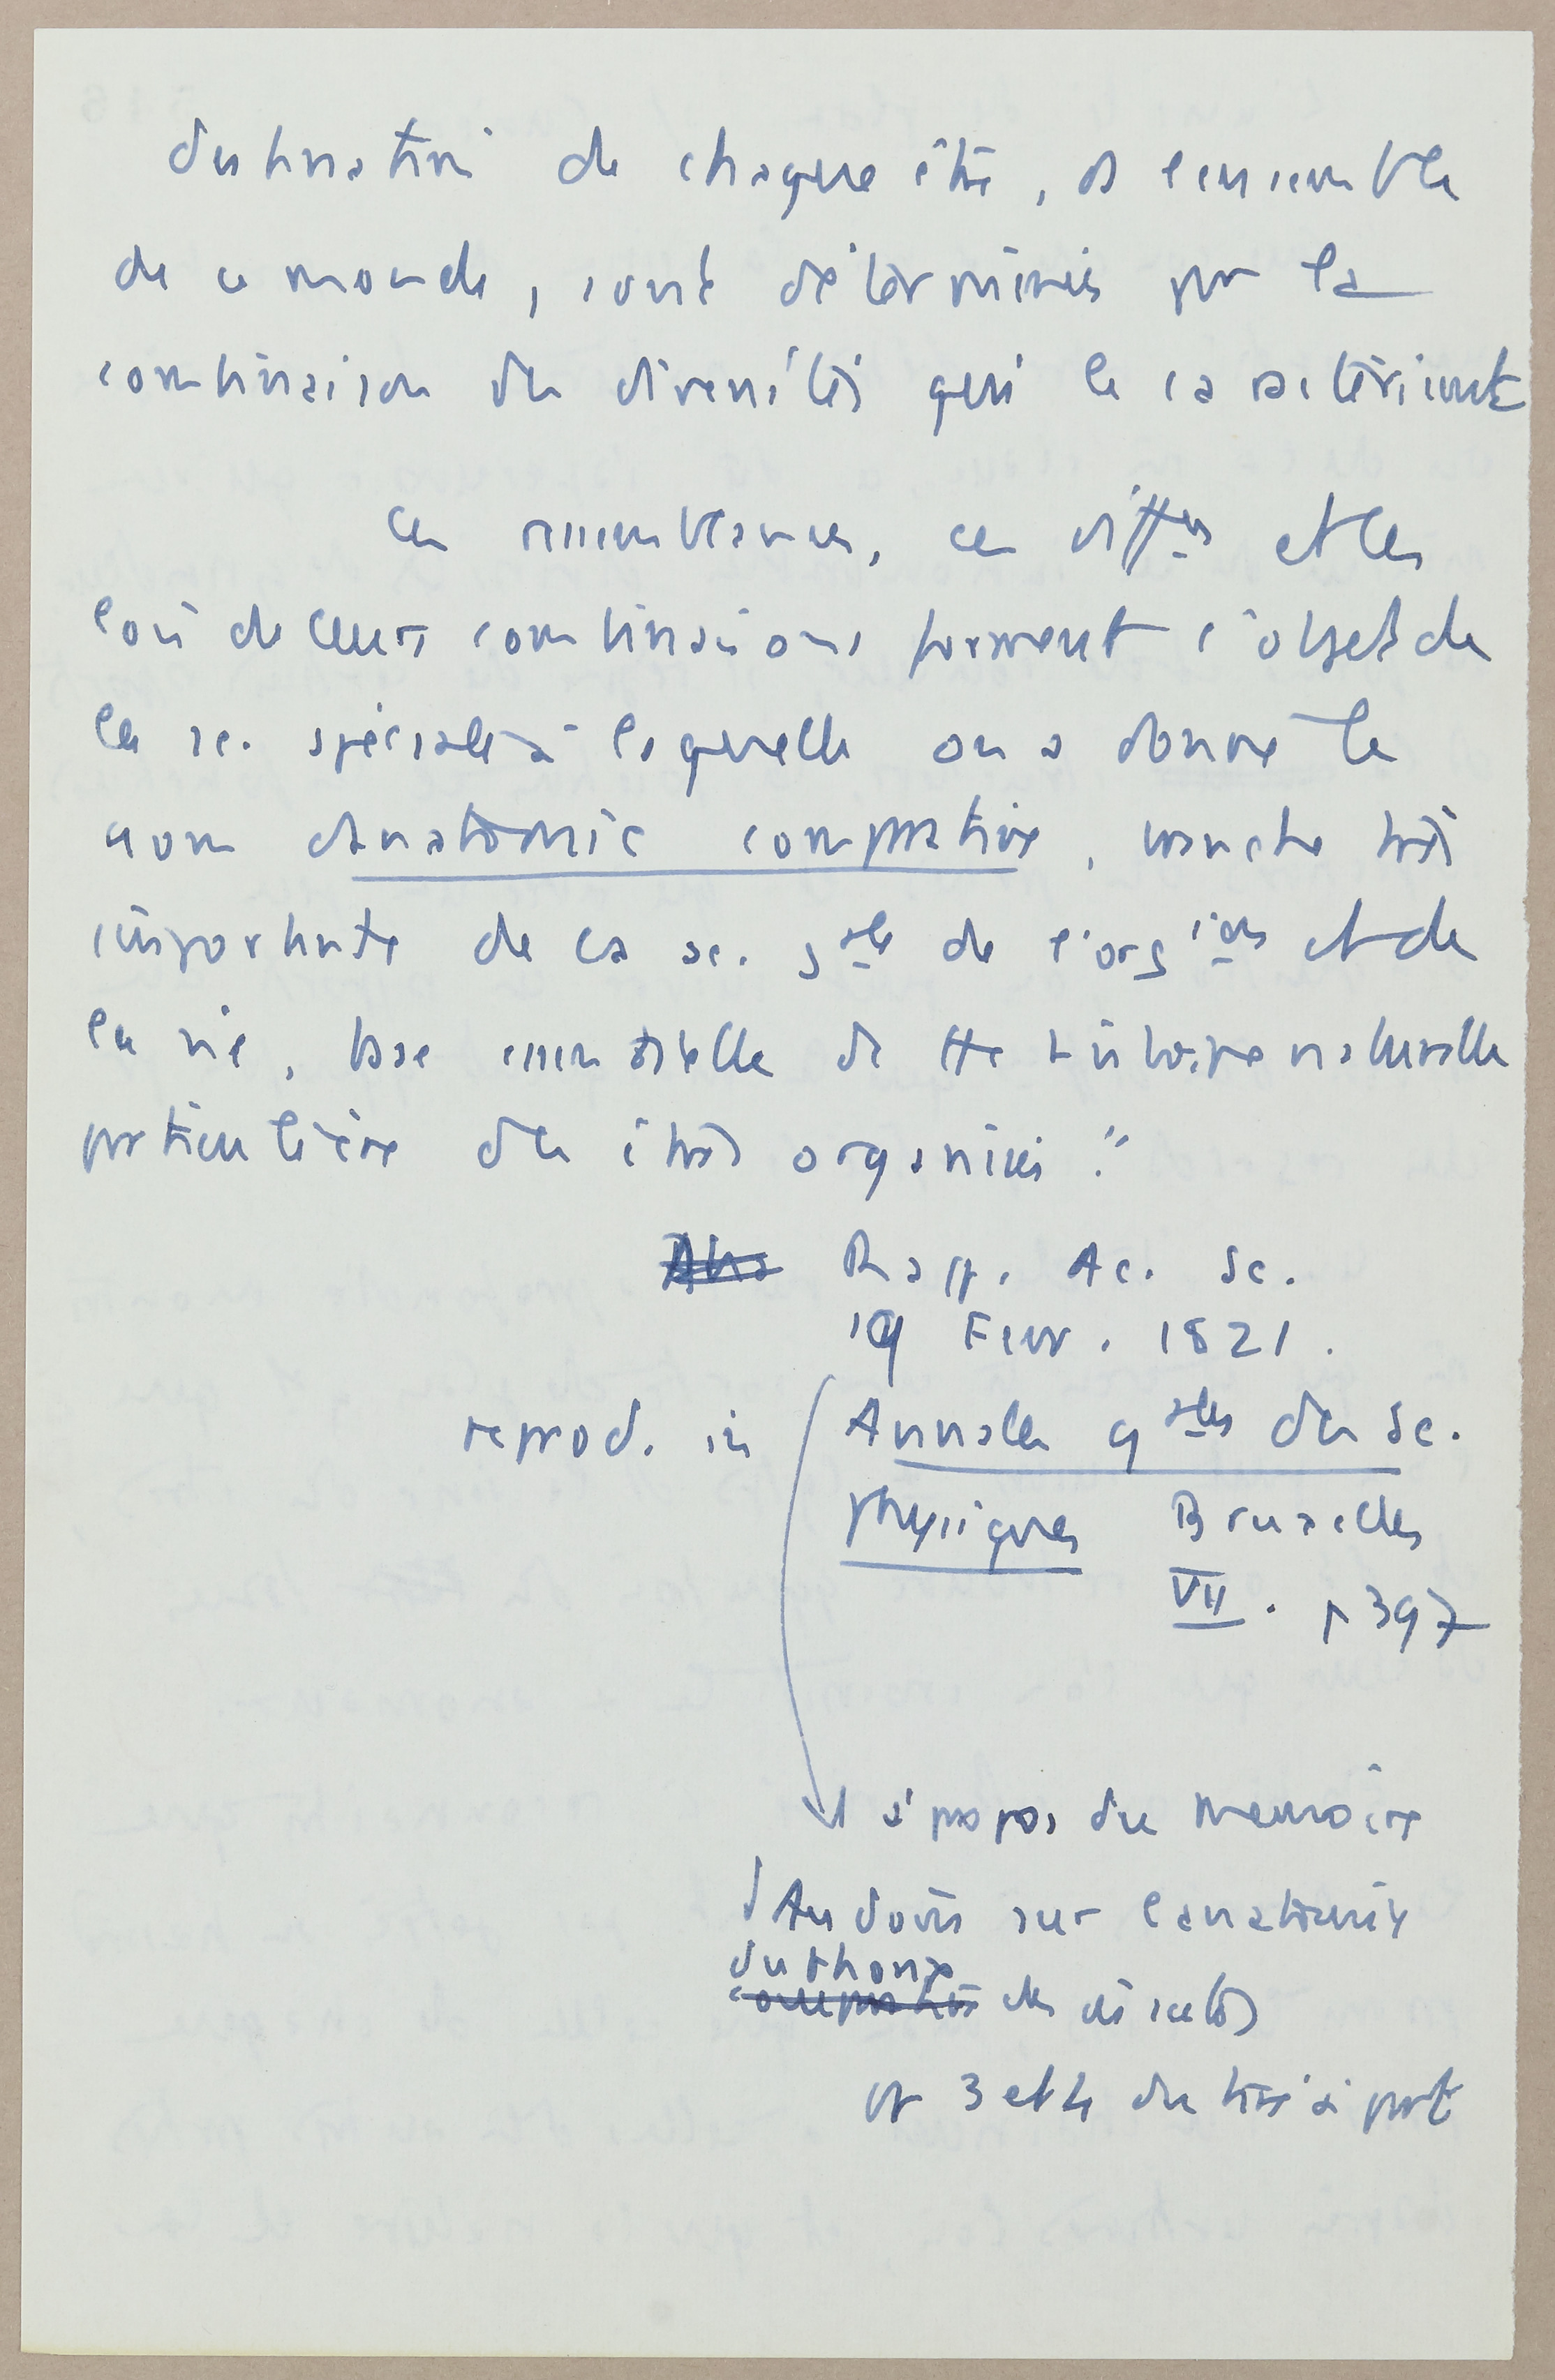 destination de chaque être, et l'ensemble
de ce monde, sont déterminés par la
combinaison des diversités qui le caractérisent
Ces ressemblances, ces diff^ces et les
lois de leurs combinaisons forment l'objet de
la sc. spéciale à laquelle on a donné le
nom d'anatomie comparative, branche très
importante de la sc. g^ale de l'org^ion et de
la vie, base essentielle de tte histoire naturelle
particulière des êtres organisés."
Rapp. Ac. Sc.
19 Fevr. 1821.
reprod. in Annales g^ales des Sc.
physiques Bruxelles
VII. p 397
à propos du memoire
d'Audouin sur l'anatomie
du thorax des insectes
pp 3 et 4 du tiré à part